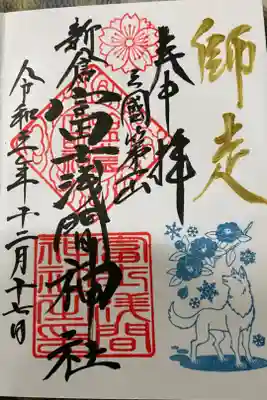 師走
奉拝
三國第一山
新倉富士浅間神社
令和 年十二月十七日
冨士浅間
神社之印